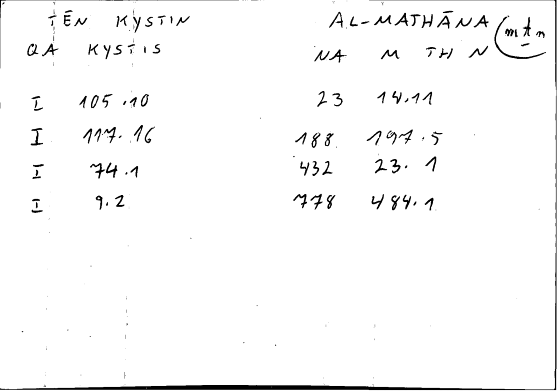 TĒN KYSTIN AL-MATHĀNA mṯn
QA KYSTIS NA M TH N
I 105.10 23 14.11
I 117.16 188 197.5
I 74.1 432 23.1
I 9.2 778 484.1